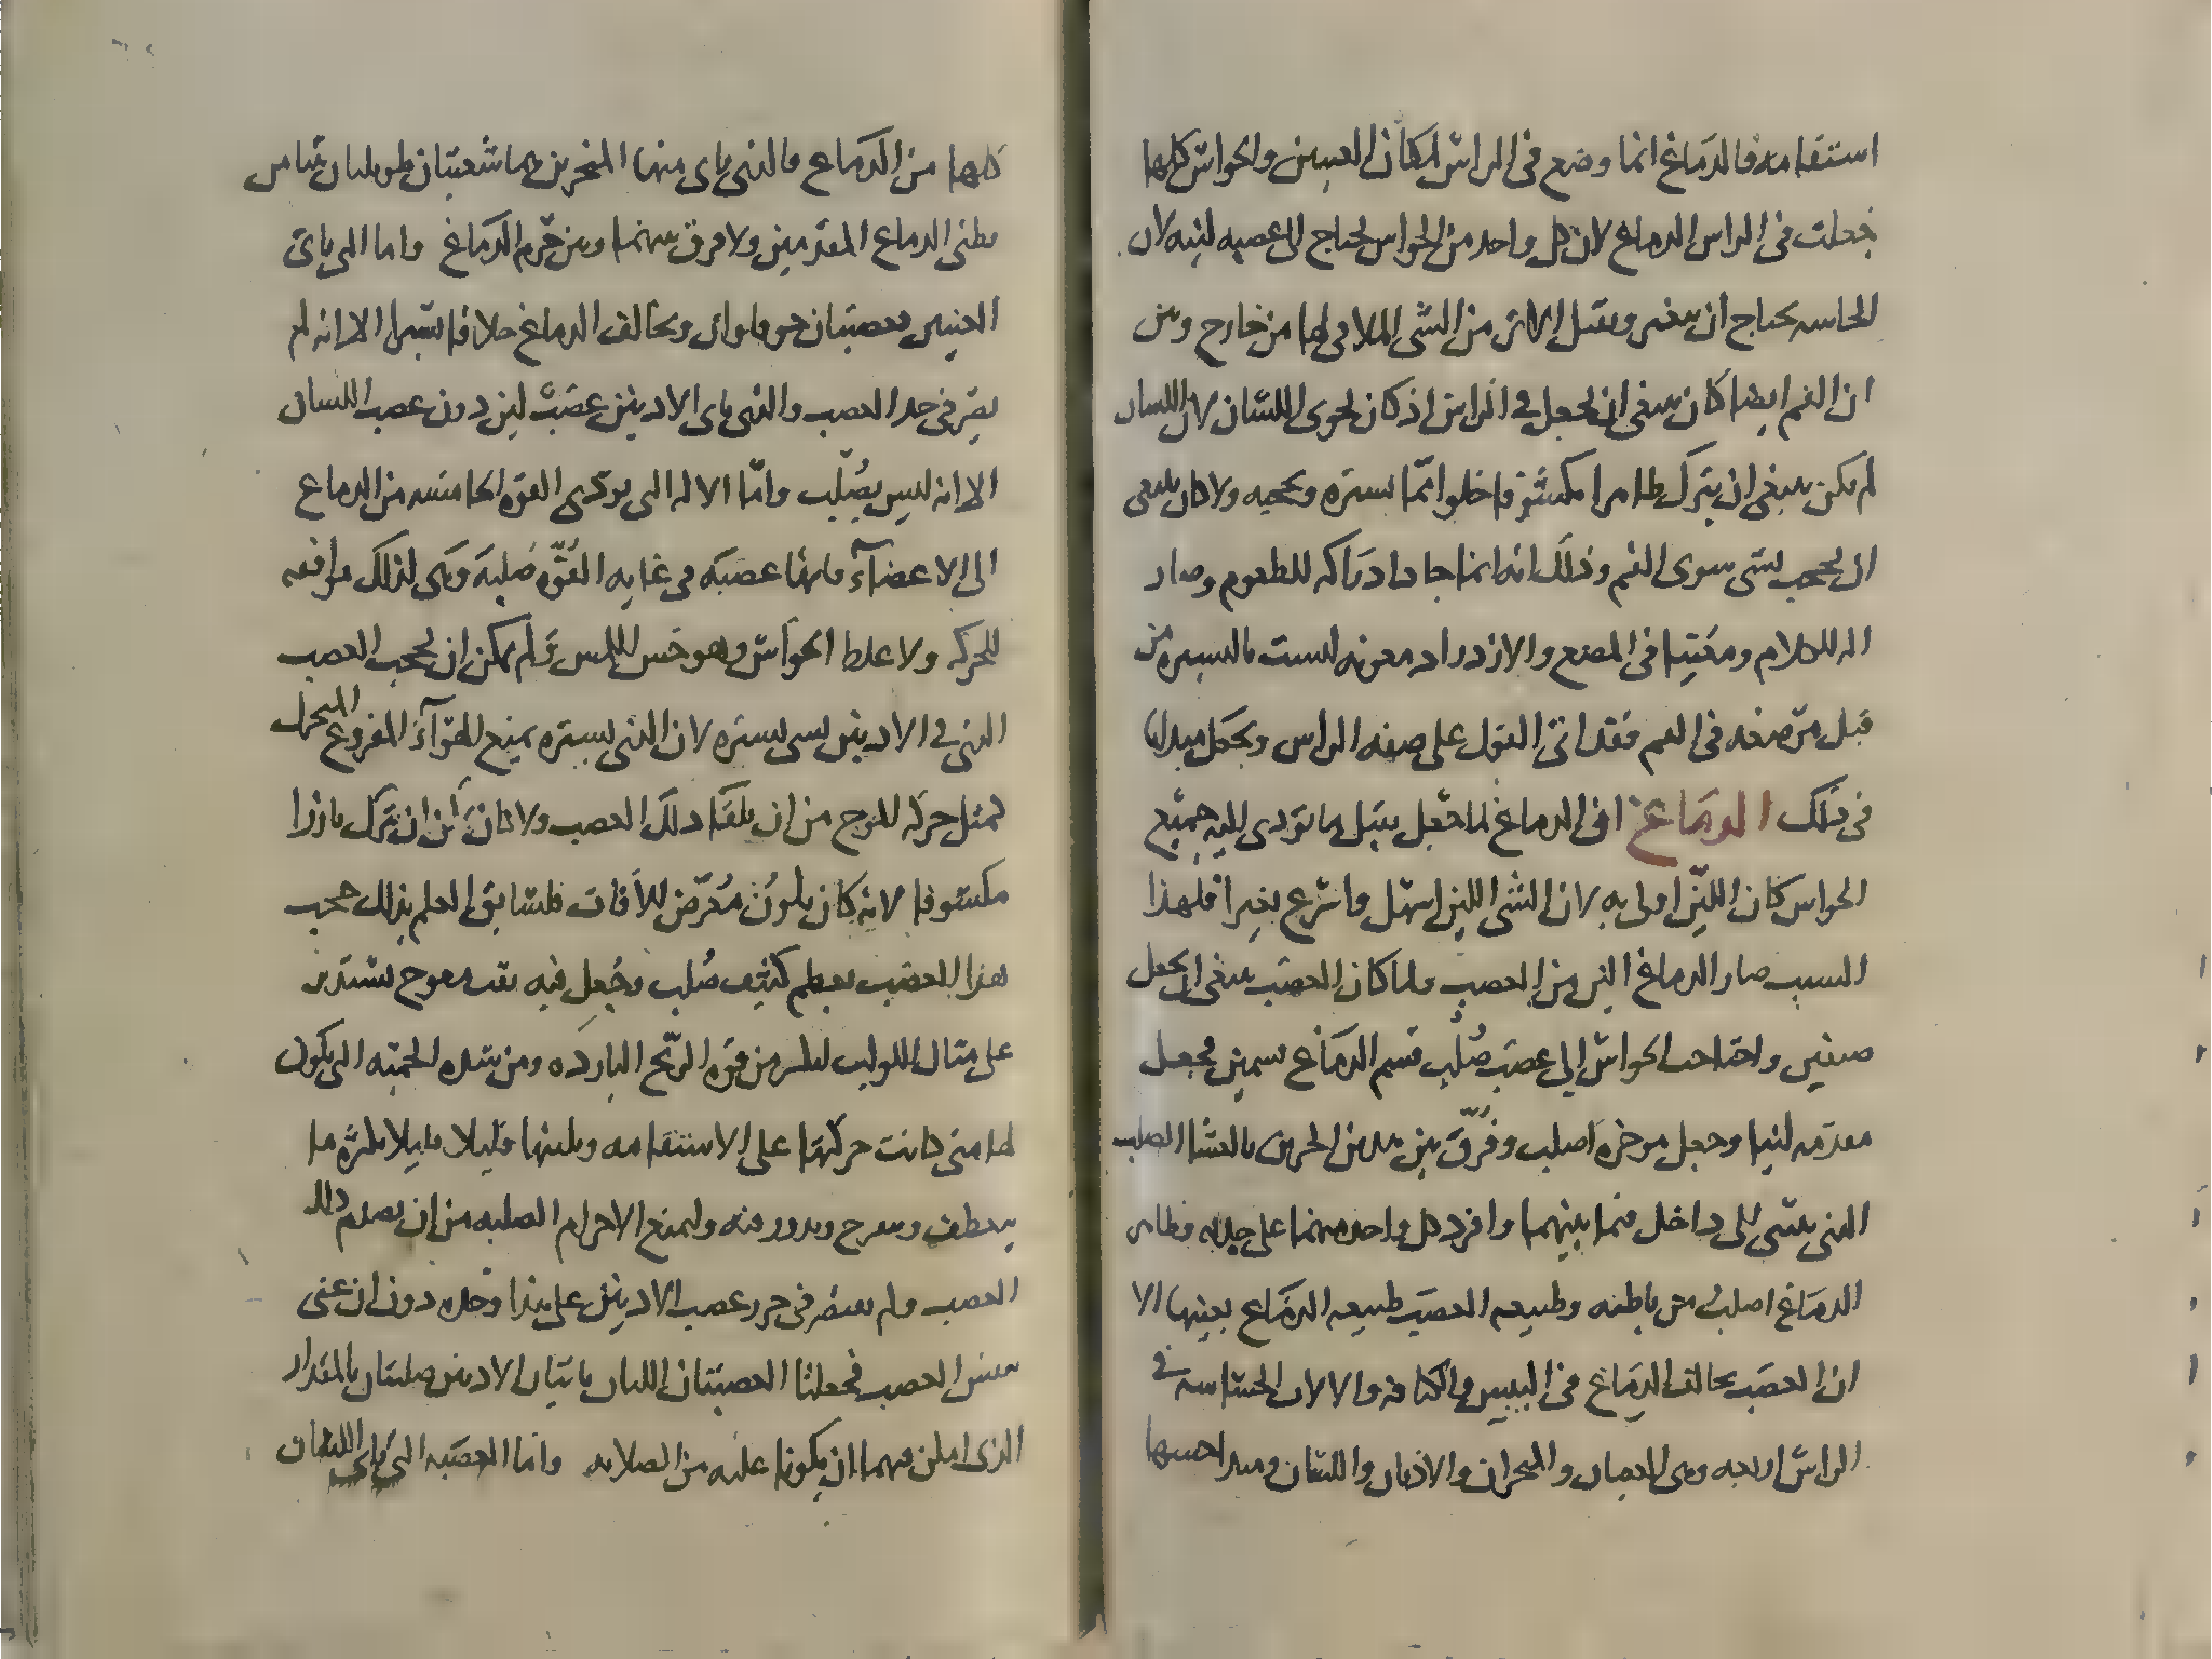 استقامه فالدماغ انما وضع فى الراس لمكان العينين والحواس كلها
جعلت فى الراس الدماغ لان كل واحد من الحواس يحتاج الى عصبه لينه لان
الحاسه يحتاج ان يتغير ويقبل الاثر من الشى الملاقى لها من خارج وبين
ان الفم ايضا كان ينبغى ان يجعل فى الراس اذ كان يحوى اللسان لان اللسان
لم يكن ينبغى ان يترك ظاهرا مكشوفا خلوا مما يستره ويحجبه ولا كان ينبغى
ان يحجب بشى سوى الفم وذلك انه انما جا دا دراكه للطعوم وصار
اله للكلام ومعينا فى المضغ والازدراد معونه ليست باليسيره من
قبل تصرفه فى الفم فقد اتى القول على صفه الراس ويجعل مبدانا
فى ذلك الدماغ ان الدماغ لما جعل يقبل ما تودى اليه جميع
الحواس كان اللين اولى به لان الشى اللين اسهل واسرع تغيرا فلهذا
السبب صار الدماغ الين من العصب ولما كان العصب ينبغى ان يجعل
صنفين واحتاجت الحواس الى عصب صلب قسم الدماغ قسمين فجعل
مقدمه لينا وجعل موخره اصلب وفرق بين هذين الجزين بالغشا الصلب
الذى ينثنى الى داخل فيما بينهما وافرد كل واحد منهما على حدته وظاهر
الدماغ اصلب من باطنه وطبيعه العصب طبيعه الدماغ بعينها الا
ان العصب يخالف الدماغ فى اليبس والكثافه والالات الحساسه فى
الراس اربعه وهى العينان والمنخران والاذنان واللسان ومبدا حسها
كلها من الدماغ فالذى ياى منها المنخرين هما شعبتان طويلتان تنبتا من
بطنى الدماغ المقدمين ولا فرق بينهما وبين جرم الدماغ واما التى ياتى
العينين فعصبتان جوفاوان ويخالف الدماغ خلافا يسيرا الا انه لم
يصر فى حد العصب والذى ياى الاذنين عصب لين دون عصب اللسان
الا انه ليس بصلب واما الاله التى يودى القوه الحساسه من الدماغ
الى الاعضآ فانها عصبه فى غايه القوه صلبه وهى لذلك موافقه
للحركه ولا غلط الحواس وهو حس اللمس ولم يمكن ان يحجب العصب
الذى فى الاذنين بشى يستره لان الذى يستره يمنع الهوآ المقروع المتحرك
بمثل حركه الموج من ان يلقا ذلك العصب ولا كان ان يترك بارزا
مكشوفا لانه كان يكون معرض للافات فلسابق العلم بذلك حجب
هذا العصب بعظم كثيف صلب وجعل فيه ثقب معوج يستدير
على مثال اللولب ليكسر من قوه الريح البارده ومن شده الحميه التى يكون
لها متى كانت حركتها على الاستقامه ويلينها قليلا قليلا بكثره ما
ينعطف ويتعرج ويدور فيه وليمنع الاجرام الصلبه من ان يصدم ذلك
العصب ولم يقتصر فى حرز عصب الاذنين على هذا وحده دون ان عنى
بنفس العصب فجعلتا العصبتان اللتان ياتيان الاذنين صلبتان بالمقدار
الذى امكن فيهما ان يكونا عليه من الصلابه واما العصبه التى ياى اللسان